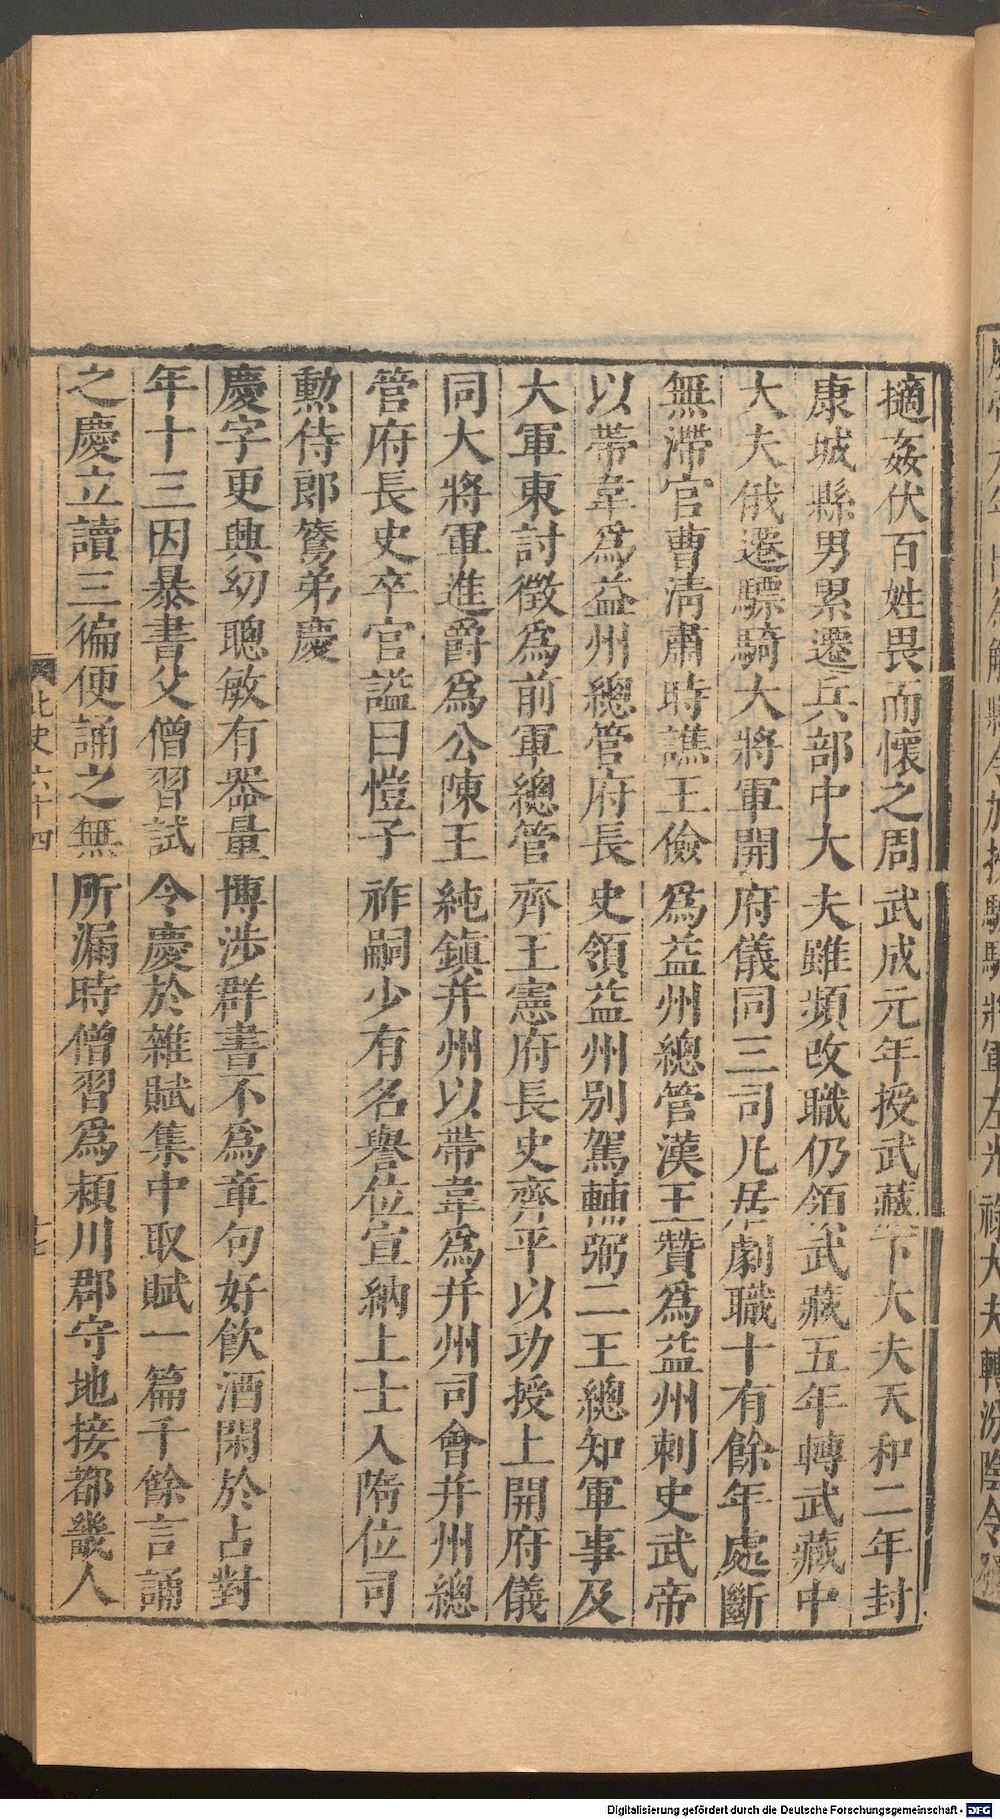 擿姦伏百姓畏而懷之周武成元年授武藏下大夫天和二年封
康城縣男累遷兵部中大夫雖頻改職仍領武藏五年轉武藏中
大夫俄遷驃騎大將軍開府儀同三司凡居劇職十有餘年處斷
無滯官曹淸肅時譙王儉爲益州總管漢王贊爲益州刺史武帝
以蔕韋爲益州總管府長史領益州别駕輔弼二王總知軍事及
大軍東討徵爲前軍總管齊王憲府長史齊平以功授上開府儀
同大將軍進爵爲公陳王純鎭并州以蔕韋爲并州司會并州總
管府長史卒官謚曰愷子祚嗣少有名譽位宣納上士入隋位司
勲侍郎鴛弟慶
慶字更興幼聰敏有器量博涉群書不爲章句好飮酒閑於占對
年十三因暴書父僧習試令慶於雜賦集中取賦一篇千餘言誦
之慶立讀三徧便誦之無所漏時僧習爲潁川郡守地接都畿人
北史六十四
十七
Digitalisierung gefördert durch die Deutsche Forschungsgemeinschaft - DFG